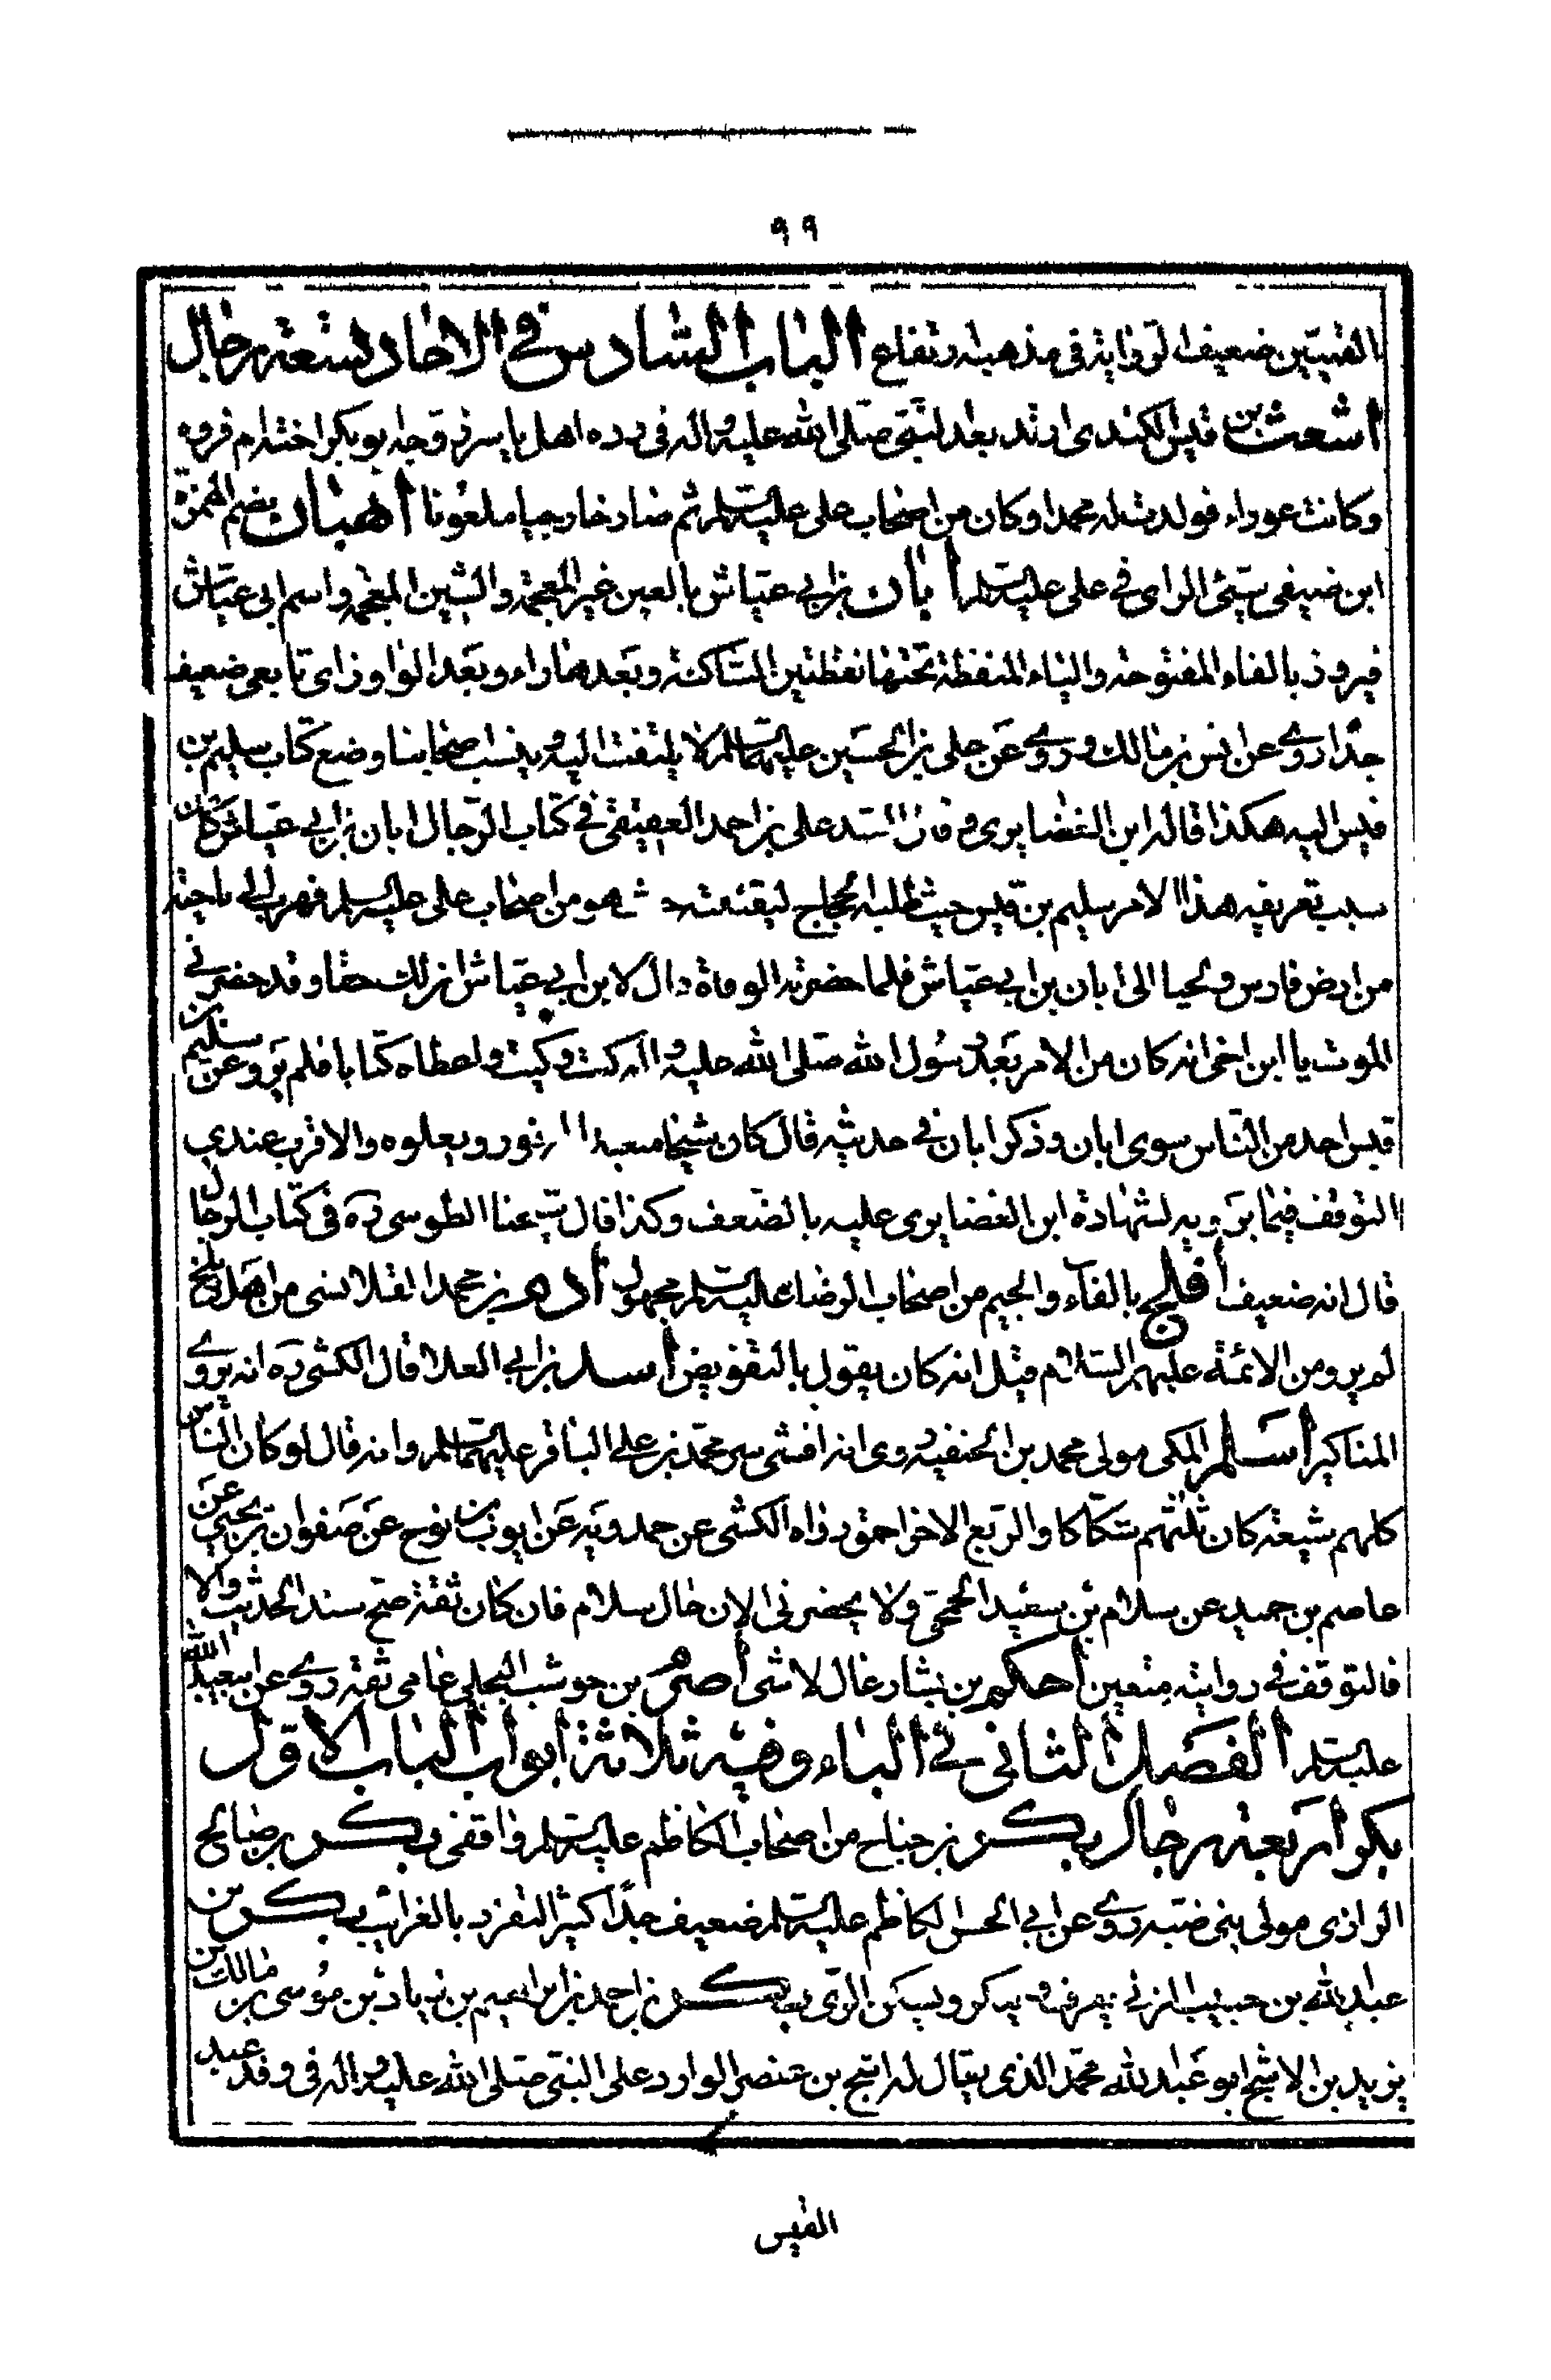 ٩٩
القبيين ضعيف الرواية في مذهبه ارتفاع الباب السادس في الاحاد تسعة رجال
أشعث بن قيس الكندي ارتد بعد النبي صلى الله عليه واله في رده اهل ياسر زوجه ابو بكر اخته ام فروه
وكانت عوراء فولدت له محمدا وكان من اصحاب علي عليه السلم ثم صار خارجيا ملعونا أهبان بضم الهمزة
ابن صيفي سيئ الراي في علي عليه السلم أبان بن ابي عياش بالعين غير المعجمة والشين المعجمة واسم ابي عياش
فيروز بالفاء المفتوحة والياء المنقطة تحتها نقطتين الساكنة وبعدها راء وبعد الواو زاي تابعي ضعيف
جدا روى عن انس بن مالك وروى عن علي بن الحسين عليهما السلم لا يلتفت اليه وينسب اصحابنا وضع كتاب سليم بن
قيس اليه هكذا قاله ابن الغضايري وقال السيد علي بن احمد العقيقي في كتاب الرجال ابان بن ابي عياش كان
سبب تعريفه هذا الامر سليم بن قيس حيث طلبه الحجاج ليقتله حيث هو من اصحاب علي عليه السلم فهرب الى ناحية
من ارض فارس ولجيا الى ابان بن ابي عياش فلما حضرته الوفاة قال لابن ابي عياش ان لك حقا وقد حضرني
الموت يا ابن اخي انه كان من الامر بعد رسول الله صلى الله عليه واله كيت وكيت واعطاه كتابا فلم يرو عن سليم بن
قيس احد من الناس سوى ابان وذكر ابان في حديثه قال كان شيخا متعبدا له نور ويعلوه والاقرب عندي
التوقف فيما يرويه لشهادة ابن الغضايري عليه بالضعف وكذا قال شيخنا الطوسي ره في كتاب الرجال
قال انه ضعيف أفلج بالفاء والجيم من اصحاب الرضا عليه السلم مجهول أدهر بن محمد القلانسي من اهل بلخ
لم يرو من الائمة عليهم السلام قيل انه كان يقول بالتفويض أسد بن ابي العلا قال الكشي ره انه يروي
المناكير أسلم المكي مولى محمد بن الحنفية روى انه افشى سر محمد بن علي الباقر عليهما السلم وانه قال لو كان الناس
كلهم شيعته كان ثلثهم شكاكا والربع الاخر احمق رواه الكشي عن حمدويه عن ايوب بن نوح عن صفوان بن يحيى عن
عاصم بن حميد عن سلام بن سعيد الجمحي ولا يحضرني الان حال سلام فان كان ثقة صح سند الحديث والا
فالتوقف في روايته متعين أحكم بن بشار غال لا شئ أصرم بن حوشب البجلي عامي ثقة روى عن ابيعبد الله
عليه السلم الفصل الثاني في الباء وفيه ثلاثة ابواب الباب الاول
بكر اربعة رجال بكر بن جناح من اصحاب الكاظم عليه السلم واقفي بكر بن صالح
الرازي مولى بني ضبة روى عن ابي الحسن الكاظم عليه السلم ضعيف جدا كثير التفرد بالغرائب بكر بن
عبد الله بن حبيب المزني يعرف وينكر ويسكن الري بكر بن احمد بن ابراهيم بن زياد بن موسى بن مالك بن
يزيد بن الاشج ابو عبد الله محمد الذي يقال له اشج بن عصر الوارد على النبي صلى الله عليه واله في وفد عبد
القيس